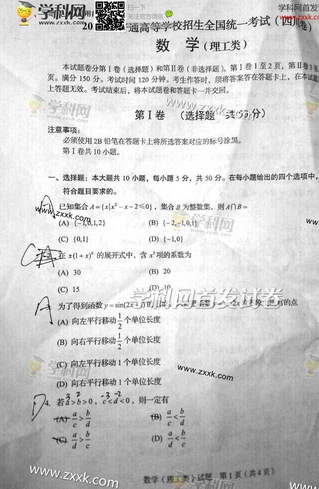 学科网 学科网首发
www.zxxk.com
20 通高等学校招生全国统一考试(四川卷)
数 学(理工类)
本试题卷分第Ⅰ卷(选择题)和第Ⅱ卷(非选择题)。第Ⅰ卷 1 至 2 页,第Ⅱ卷 3
页,满分 150 分。考试时间 120 分钟。考生作答时,须将答案答在答题卡上,在本试
上答题无效。考试结束后,将本试题卷和答题卡一并交回。
第Ⅰ卷 (选择题 共50分)
注意事项:
必须使用 2B 铅笔在答题卡上将所选答案对应的标号涂黑。
第Ⅰ卷共 10 小题。
一、选择题:本大题共 10 小题,每小题 5 分,共 50 分。在每小题给出的四个选项中,
符合题目要求的。
A 已知集合 A={x|x²−x−2≤0},集合 B 为整数集,则 A∩B=
(A) {−1,0,1,2} (B) {−2,−1,0,1}
(C) {0,1} (D) {−1,0}
C 在 x(1+x)⁶ 的展开式中,含 x³ 项的系数为
(A) 30 (B) 20
(C) 15 (D) 10
学科网首发试卷
A 为了得到函数 y=sin(2x+1) 的 的点
(A) 向左平行移动 1/2 个单位长度
(B) 向右平行移动 1/2 个单位长度
(C) 向左平行移动 1 个单位长度
(D) 向右平行移动 1 个单位长度
3 2 -3 -2
D 4. 若 a>b>0,c<d<0,则一定有
(A) a/c > b/d (B) a/c < b/d
(C) a/d > b/c (D) a/d < b/c
www.zxxk.com
数学(理工类)试题 第 1 页(共 4 页)